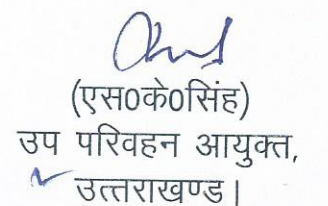 (एस0के0सिंह)
उप परिवहन आयुक्त,
उत्तराखण्ड।